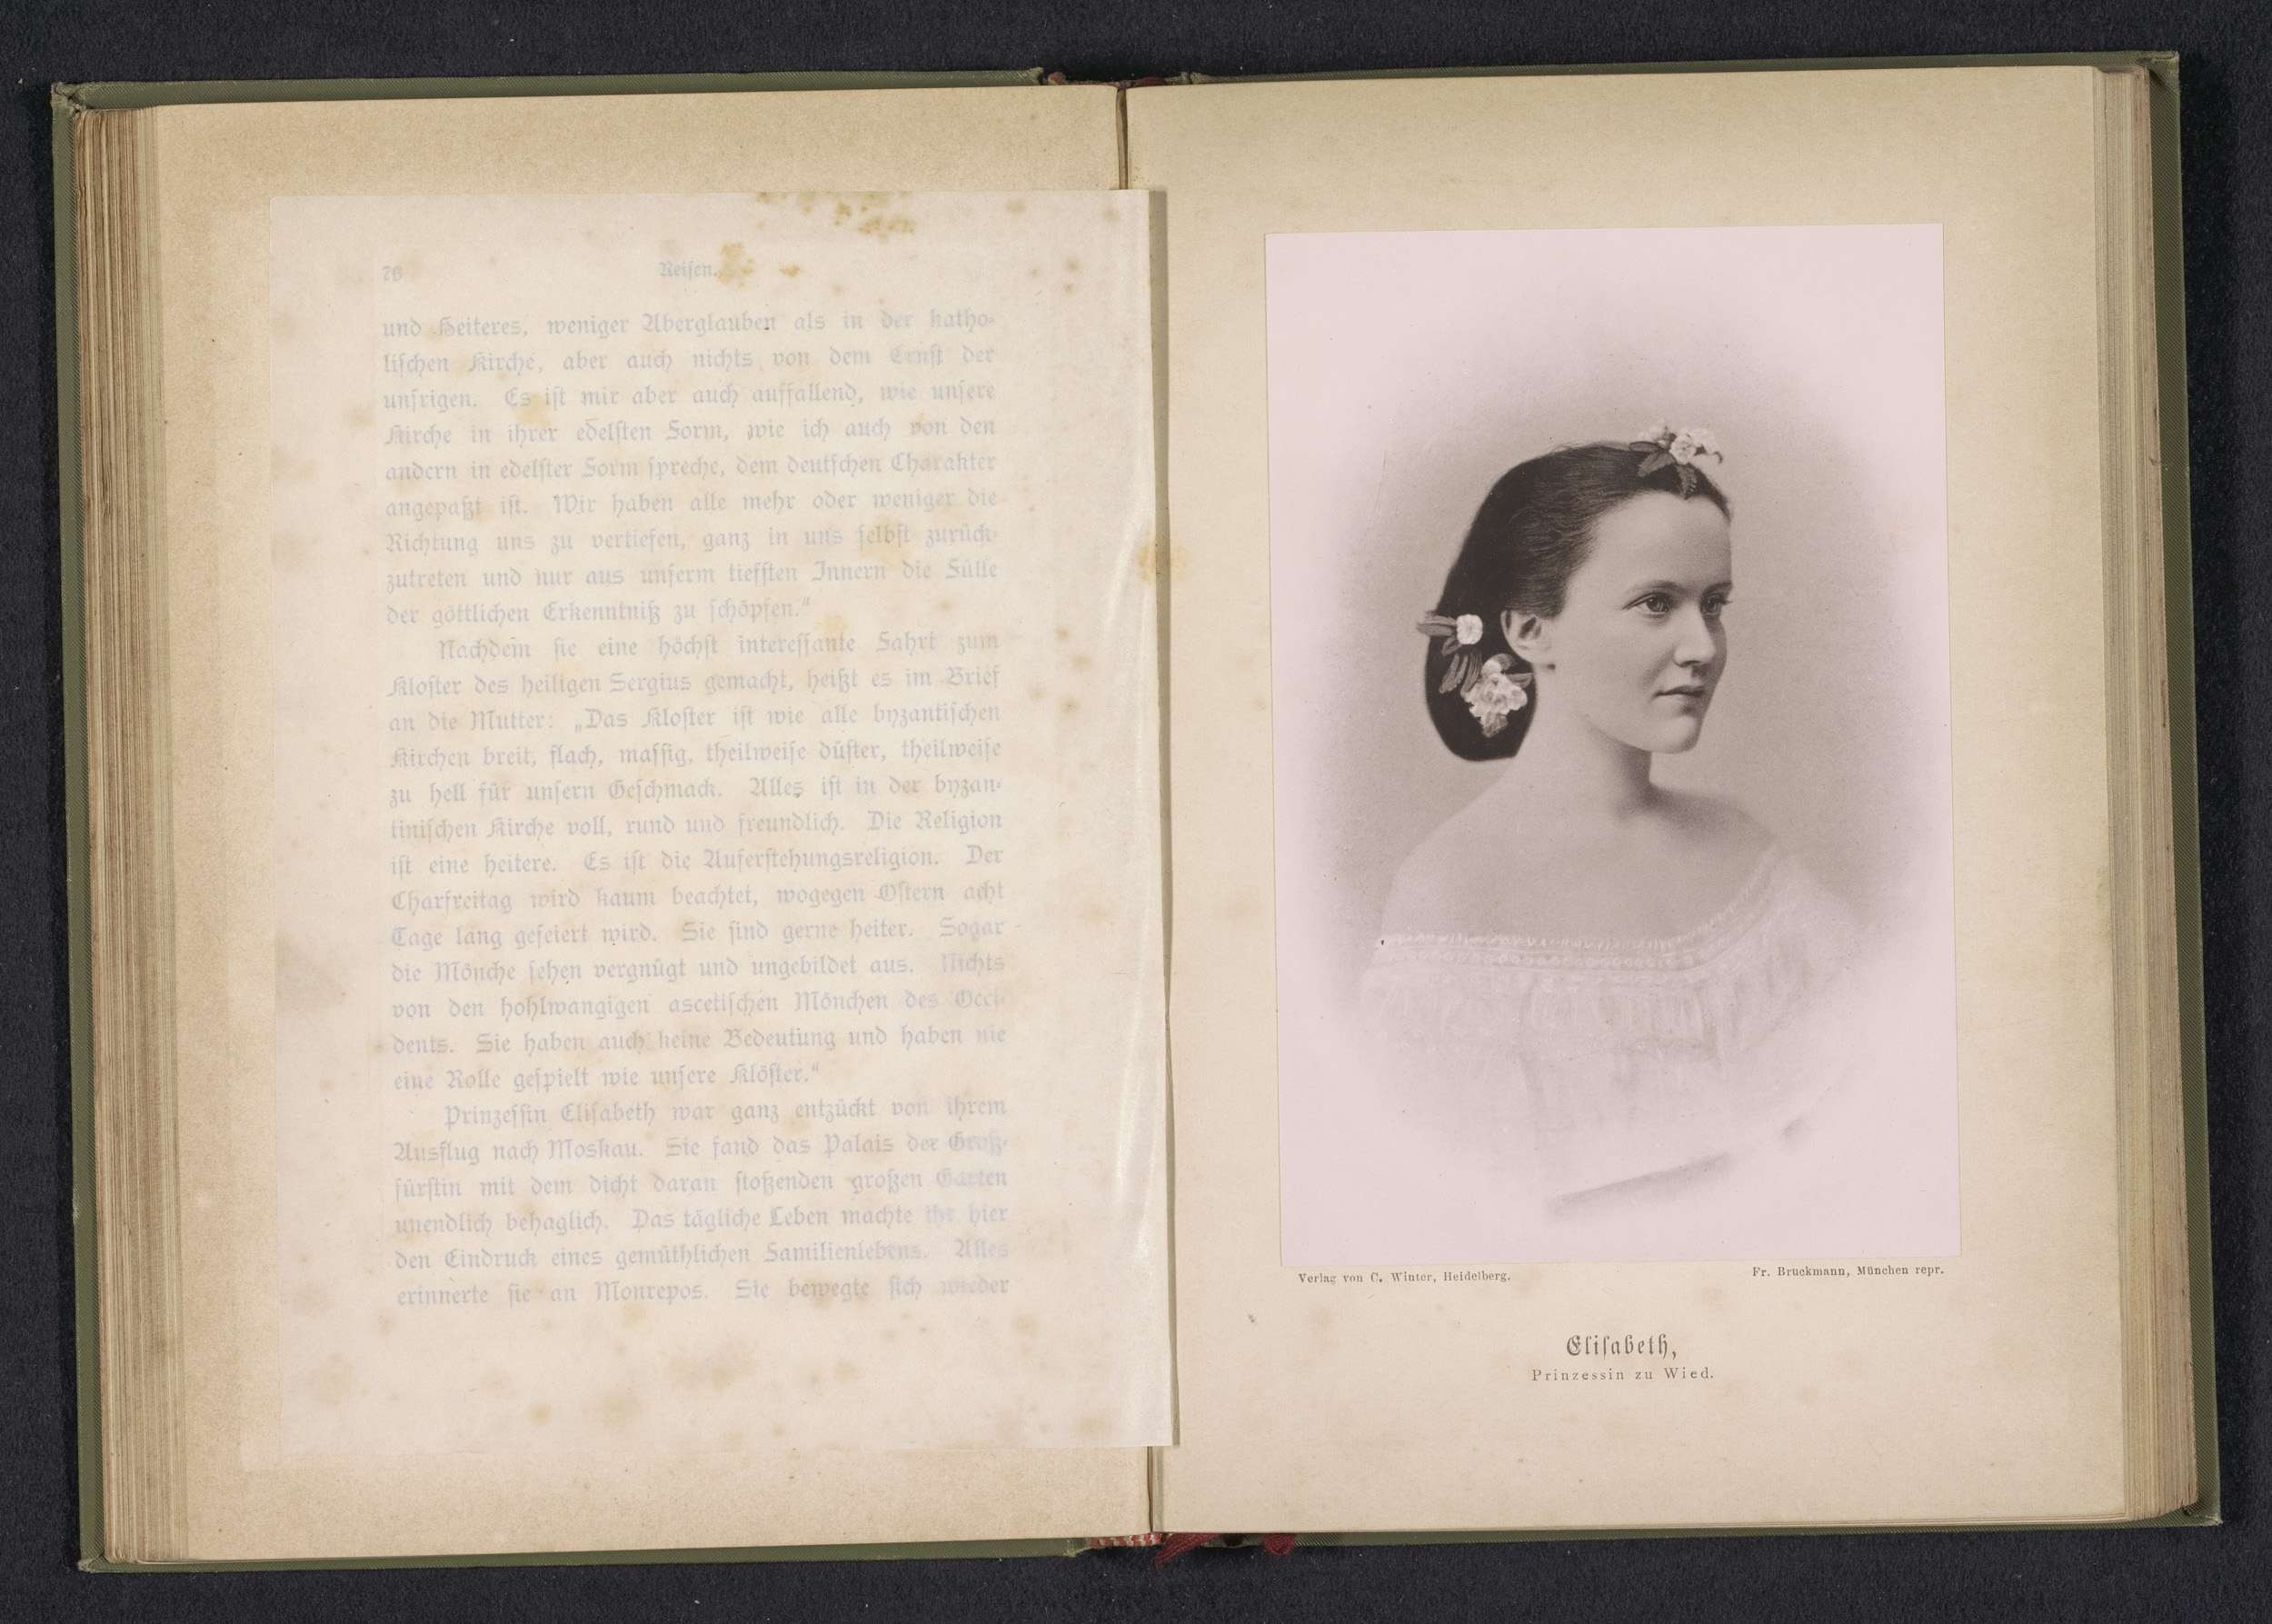 76
Reisen.
und Heiteres, weniger Aberglauben als in der katho-
lischen Kirche, aber auch nichts von dem Ernst der
unsrigen. Es ist mir aber auch auffallend, wie unsere
Kirche in ihrer edelsten Form, wie ich auch von den
andern in edelster Form spreche, dem deutschen Charakter
angepaßt ist. Wir haben alle mehr oder weniger die
Richtung uns zu vertiefen, ganz in uns selbst zurück-
zutreten und nur aus unserm tiefsten Innern die Fülle
der göttlichen Erkenntniß zu schöpfen.“
Nachdem sie eine höchst interessante Fahrt zum
Kloster des heiligen Sergius gemacht, heißt es im Brief
an die Mutter: „Das Kloster ist wie alle byzantischen
Kirchen breit, flach, massig, theilweise düster, theilweise
zu hell für unsern Geschmack. Alles ist in der byzan-
tinischen Kirche voll, rund und freundlich. Die Religion
ist eine heitere. Es ist die Auferstehungsreligion. Der
Charfreitag wird kaum beachtet, wogegen Ostern acht
Tage lang gefeiert wird. Sie sind gerne heiter. Sogar
die Mönche sehen vergnügt und ungebildet aus. Nichts
von den hohlwangigen ascetischen Mönchen des Occi-
dents. Sie haben auch keine Bedeutung und haben nie
eine Rolle gespielt wie unsere Klöster.“
Prinzessin Elisabeth war ganz entzückt von ihrem
Ausflug nach Moskau. Sie fand das Palais der Groß-
fürstin mit dem dicht daran stoßenden großen Garten
unendlich behaglich. Das tägliche Leben machte ihr hier
den Eindruck eines gemüthlichen Familienlebens. Alles
erinnerte sie an Monrepos. Sie bewegte sich wieder
Verlag von C. Winter, Heidelberg.
Fr. Bruckmann, München repr.
Elisabeth,
Prinzessin zu Wied.